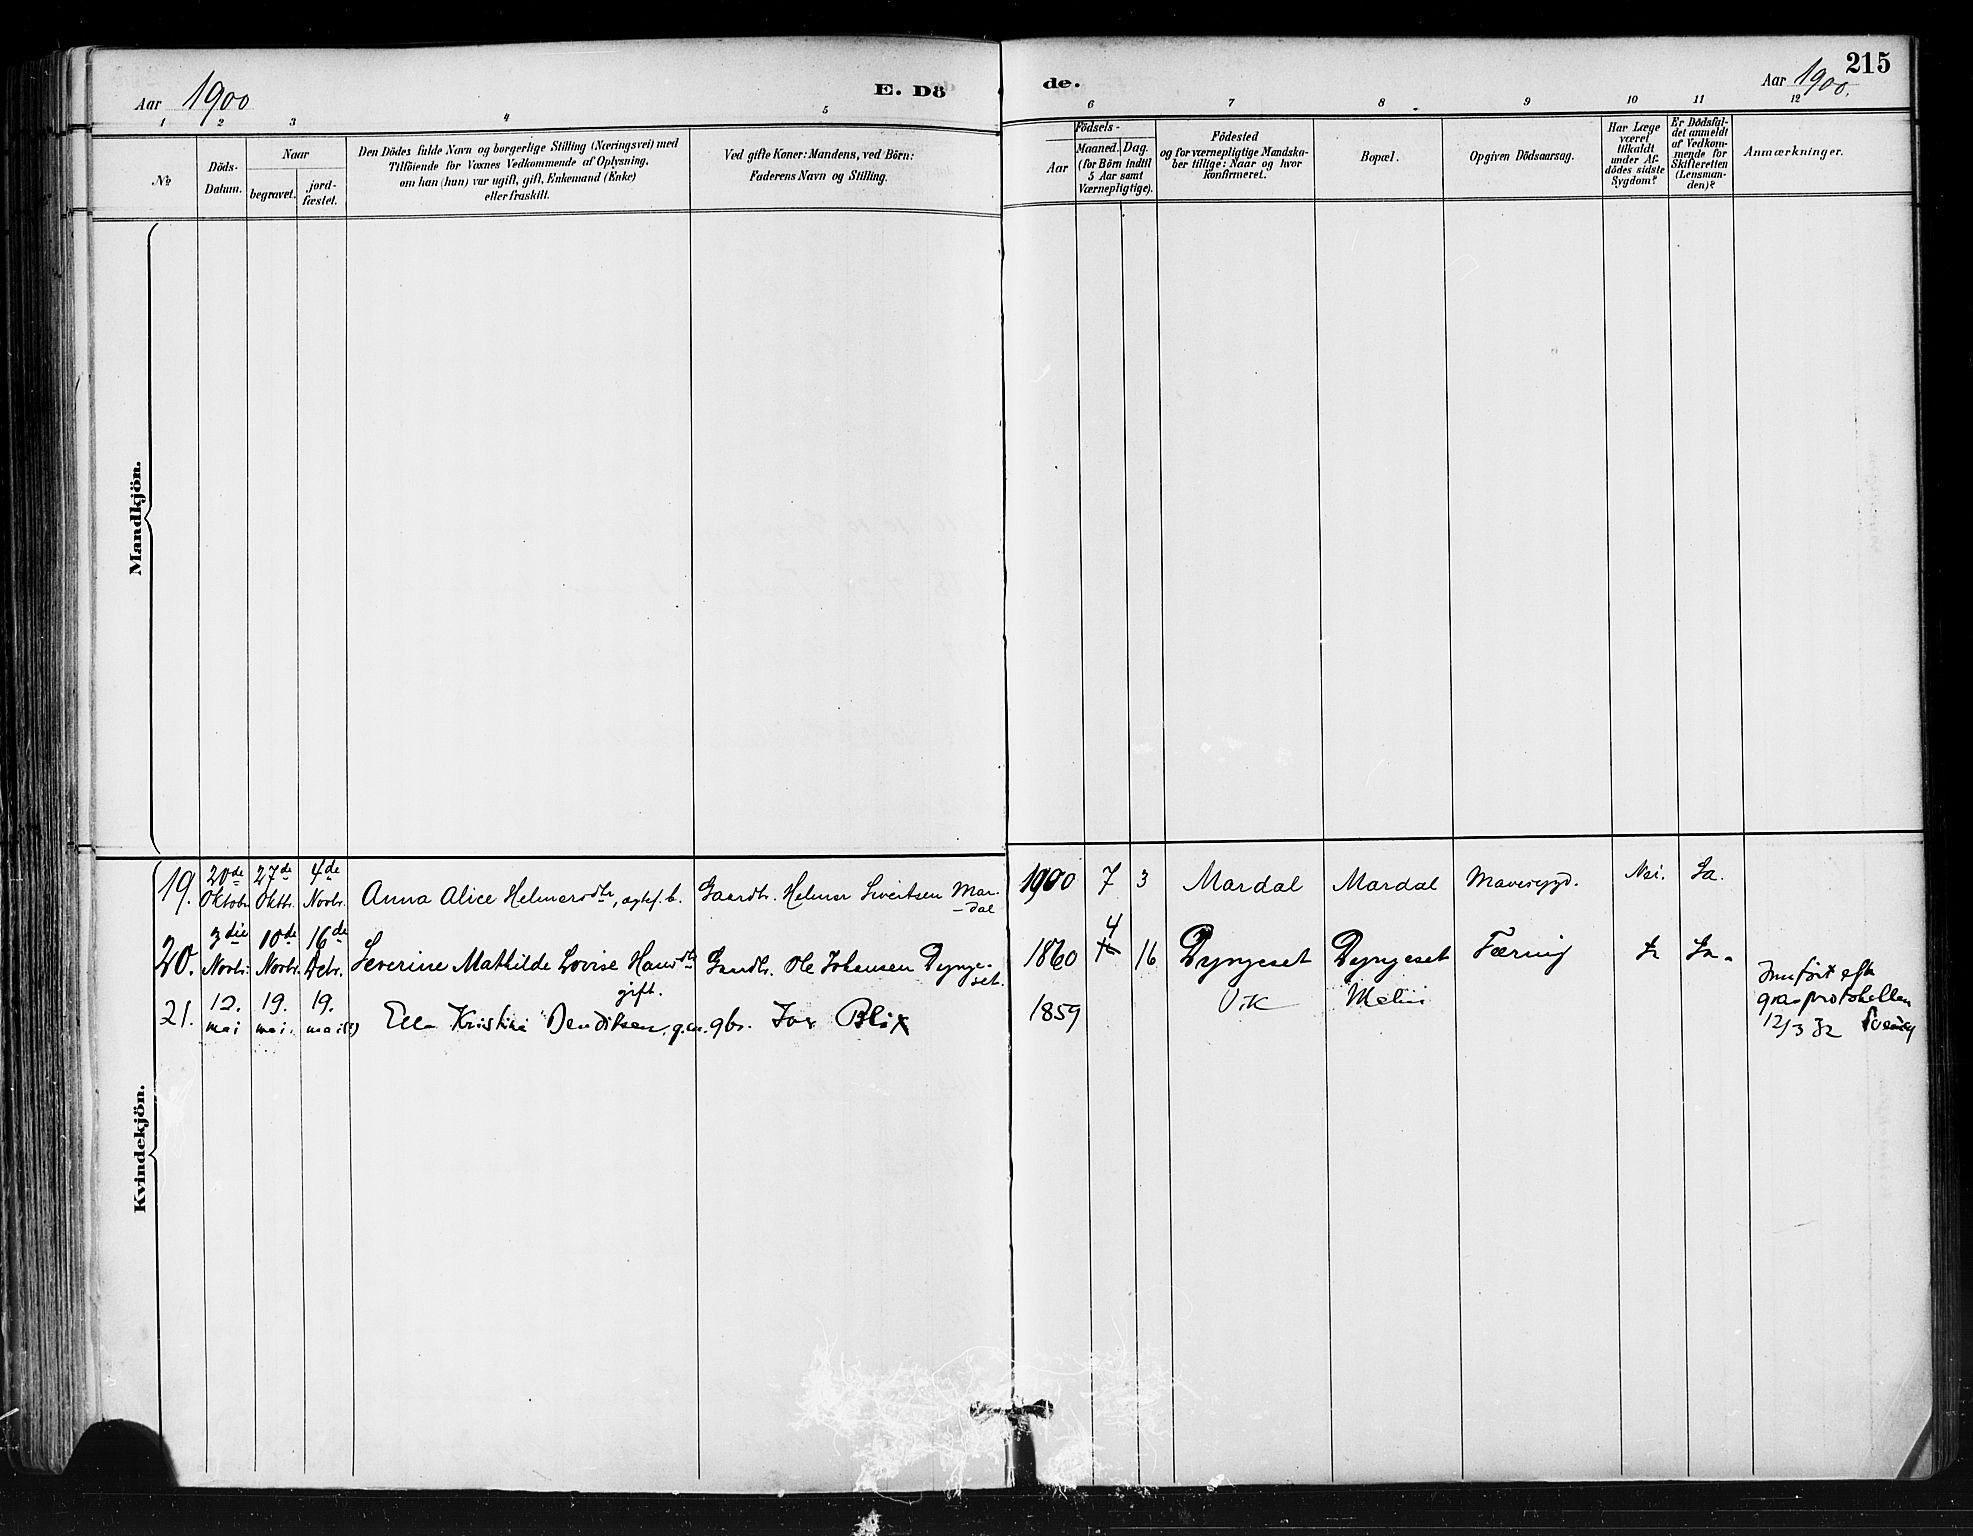 215
Aar 1900
E. Dö
de.
Aar 1900.
1 2 3 4 5 6 7 8 9 10 11 12
№
Döds-
Datum.
Naar
begravet.
jord-
fæstet.
Den Dödes fulde Navn og borgerlige Stilling (Næringsvei) med
Tilföiende for Voxnes Vedkommende af Oplysning,
om han (hun) var ugift, gift, Enkemand (Enke)
eller fraskilt.
Ved gifte Koner: Mandens, ved Börn:
Faderens Navn og Stilling.
Födsels-
Aar
Maaned. Dag.
(for Börn indtil
5 Aar samt
Værnepligtige).
Födested
og for værnepligtige Mandska-
ber tillige: Naar og hvor
konfirmeret.
Bopæl.
Opgiven Dödsaarsag.
Har Læge
været
tilkaldt
under Af-
dödes sidste
Sygdom?
Er Dödsfal-
det anmeldt
af Vedkom-
mende for
Skifteretten
(Lensman-
den)?
Anmærkninger.
Mandkjön.
Kvindekjön.
19. 20de Oktobr 27de Oktbr. 4de Novbr. Anna Alice Helmersdtr, ægtef. b. Gaardbr. Helmer Sivertsen Mar-
dal 1900 7 3 Mardal Mardal Mavesygd. Nei. Ja.
20. 3die Novbr. 10de Novbr. 16de Debr. Severine Mathilde Lovise Hansdtr
gift. Gaardbr. Ole Johansen Dynge-
set. 1860 4 16 Dyngeset Dyngeset Tæring Ja.
21. 12. mai 19. mai. 19. mai Kristine gbr. Blix 1859 Vik
Innført efter
protokollen
12/3 32